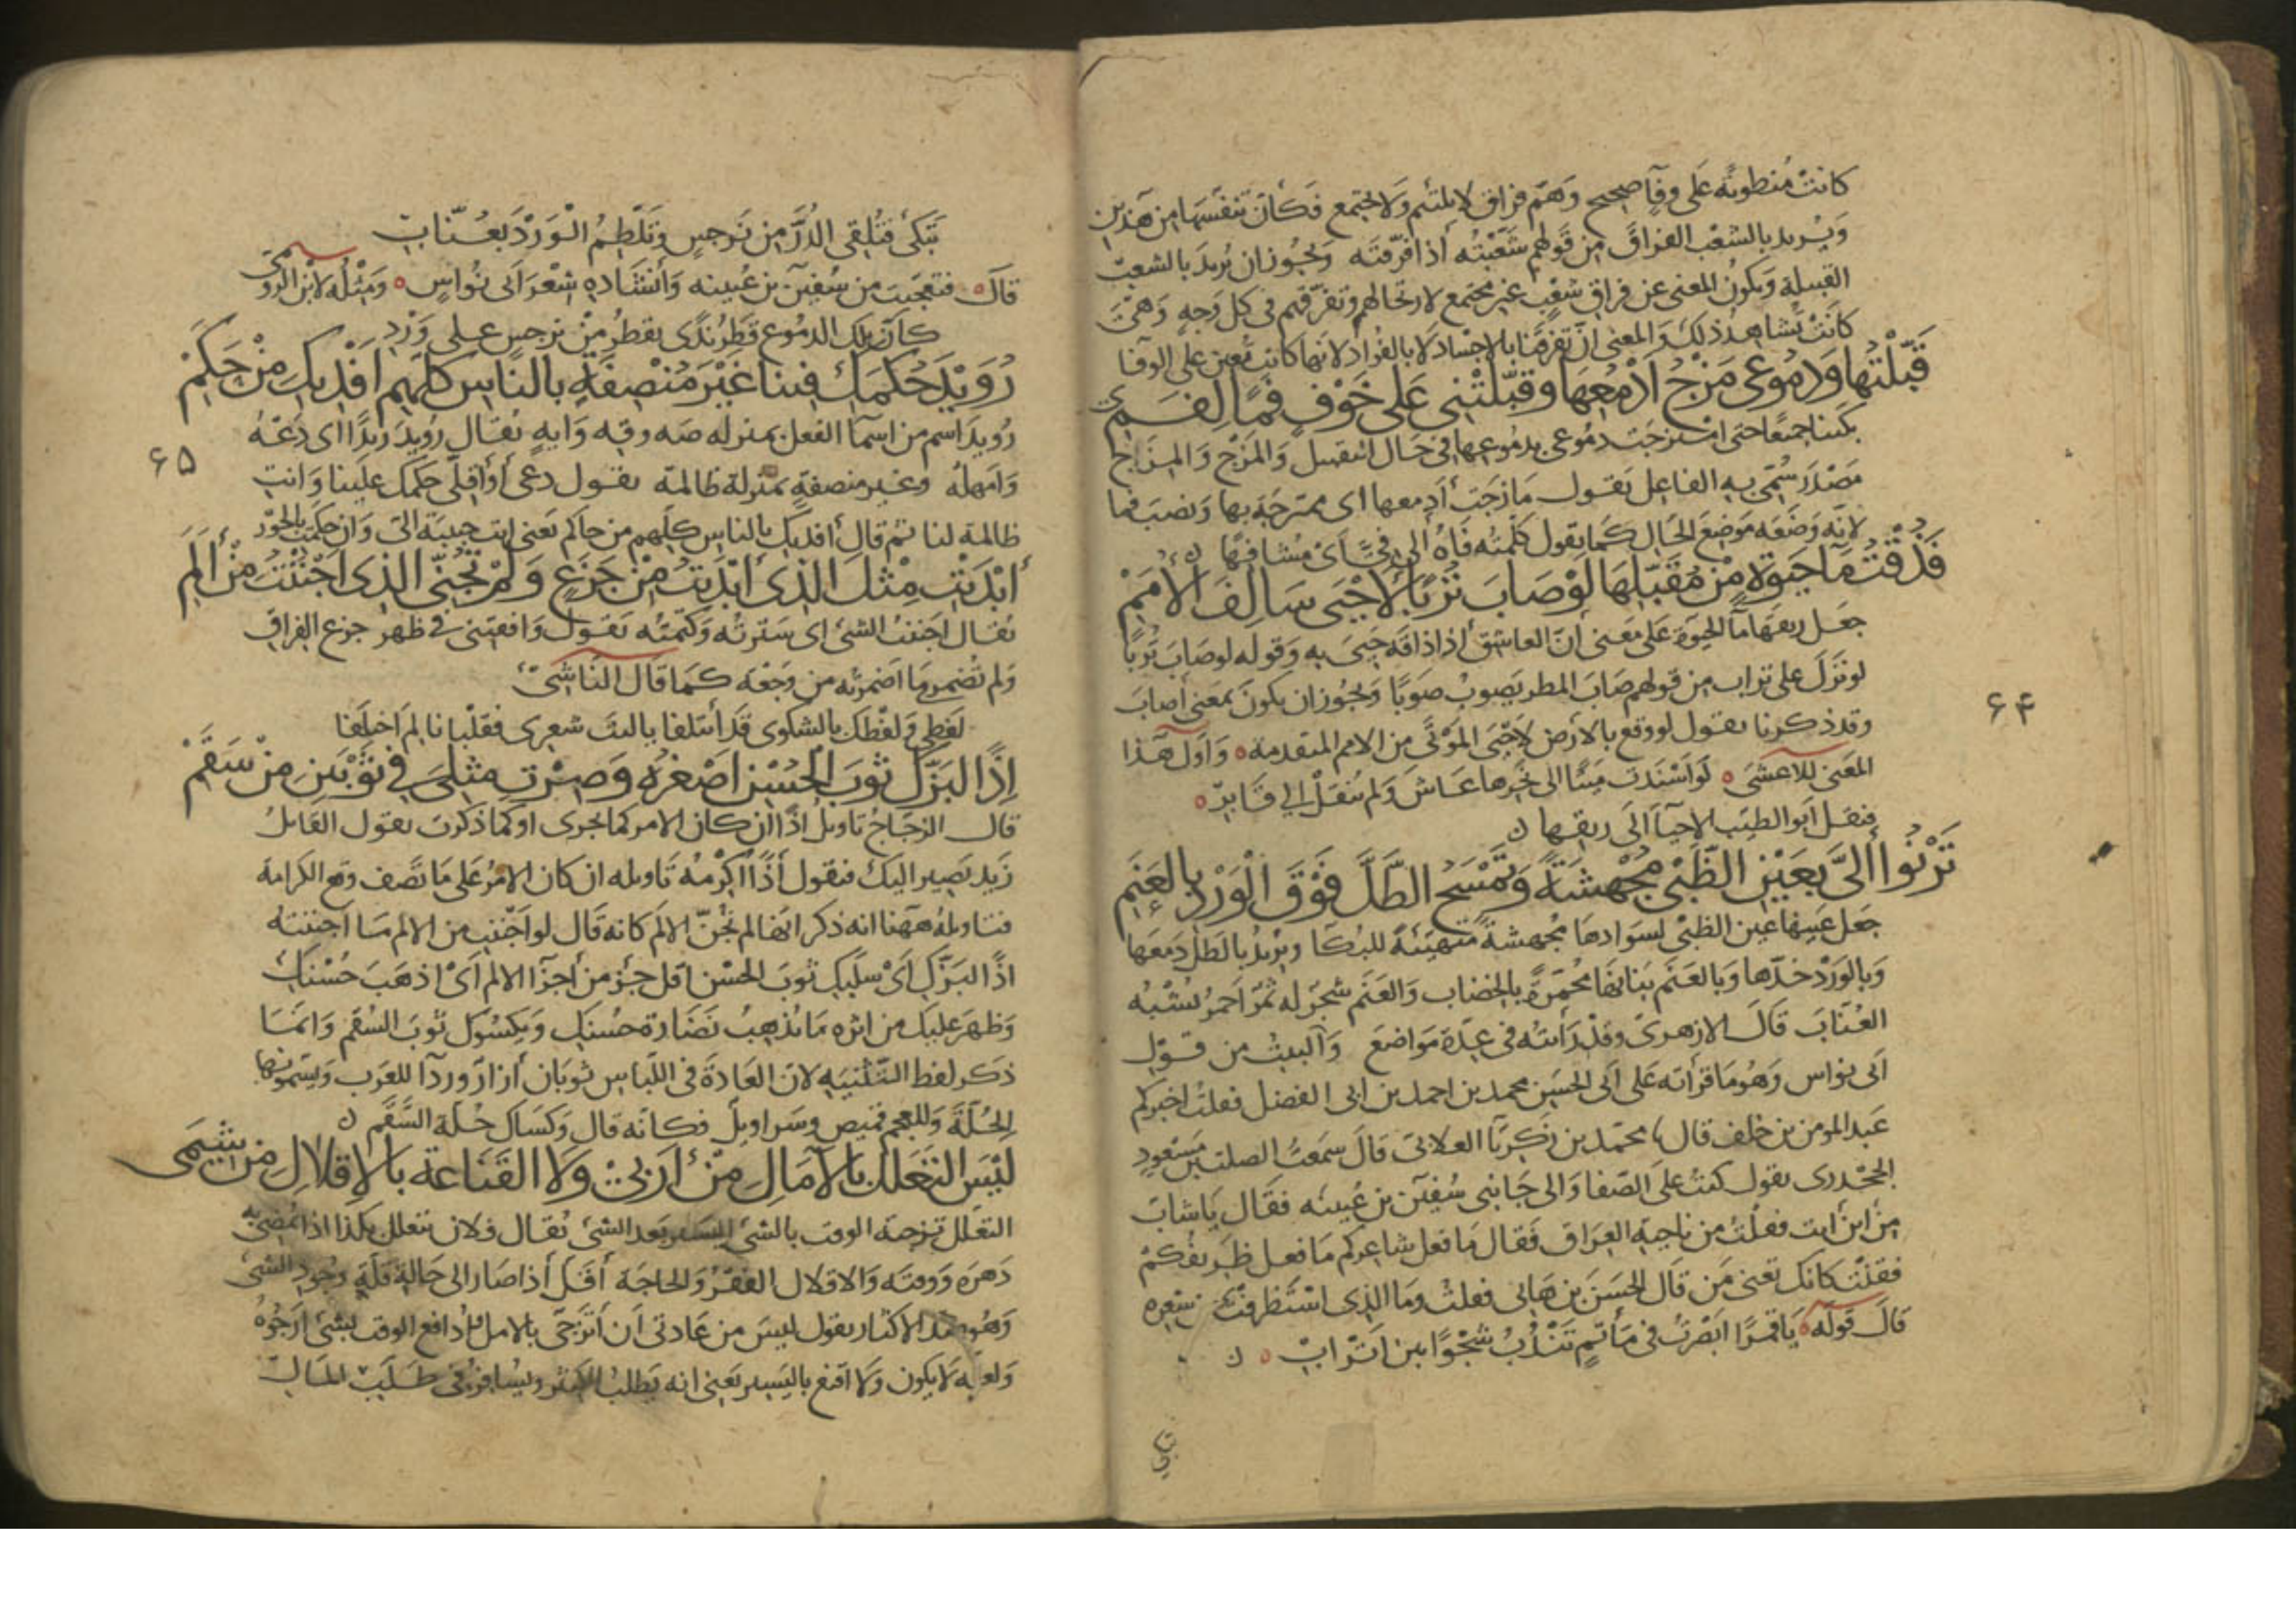 كانت منطوية على وفآ صحيح وَهَم فراق لا يلتئم وَلا يجتمع فكأن تنفسها من هذين
وَيُريد بالشعب الفراقَ من قولهم شَعَبْتُه أذا فرّقتَه وَيجُوز ان يُريدَ بالشعبِ
القبيلة وَيكونُ المعنى عن فراقِ شعبٍ غير مجتمع لارتحالهم وتفرّقهم فى كل وَجهٍ وَهىَ
كانَتْ تشاهدُ ذلك وَالمعنى انّ تفرقنا بالاجْساد لا بالفُؤاد لانها كانت تُعين على الوفآ
قَبَّلْتُهَا وَدُمُوعى مَزْجُ اَدْمُعِهَا وقَبَّلَتْنِى عَلى خَوْفٍ فمًا لِفَمِ
بكينا جميعًا حتى امتزجَت دمُوعى بدمُوعِها فى حَال التقبيل وَالمَزْج وَالمِزَاج
مَصْدَر سُمّىَ به الفاعِل تقول مَازجَت أدمعها اى ممتزجَة بها وَنصَبَ فما
لانّه وَضَعَه موَضعَ الحَال كمَا يقول كلّمتُه فَاهُ ألى فىّ اَىْ مُشافهًا ن
فَذُقْتُ مَآ حَيَوةٍ مِنْ مُقَبَّلِهَا لَوْ صَابَ تُرْبًا لَاَحْيَى سَالِفَ الْاُمَمِ
جعَل ريقَها مآ الحيوة عَلى مَعَنى أنّ العاشق أذا ذاقَه حَيىَ به وَقوله لو صَابَ تُرْبًا
لو نَزَلَ على ترابٍ من قولهم صَابَ المطر يَصِوبُ صَوْبًا وَيجُوز ان يكونَ بمعَنى أصابَ
وقد ذكرنا يقول لو وقع بالارض لَاَحْيَى المَوْتَى من الامم المتقدمة ٥ وَاَوّل هَذا
المعَنى للاعشى ٥ لَو اَسْنَدت مَيتًا الى نحرها عَاشَ وَلم يُنْقَلْ الى قابرِ ٥
فنقل اَبو الطيّب الاحيآ الى ريقها ن
تَرْنُوا أِلىَّ بِعَيْنِ الظَّبْىِ مُجْهِشَةً وَتَمْسَحُ الطَّلَّ فَوْقَ الْوَرْدِ بِالعَنَمِ
جَعل عَينها عين الظبْى لسَوَادها مُجْهشة متهيّئة للبُكآ ويرُيدُ بالطّل دَمعَها
وَبالوَرْد خدّها وَبالعَنَم بَنانها مُحْمَرّةً بالخضاب وَالعَنَم شجرٌ له ثَمَرٌ احَمرُ يُشْبُه
العُنّابَ قَالَ الازهرىّ وَقَدْ رَأيتُه فى عِدّة مَوَاضع وَالبيتُ من قَوْلِ
اَبى نواس وَهُوَ مَا قرأته عَلى اَبى الحسَين محمد بن احمد بن ابى الفضل فقلتُ اخبركم
عَبد المؤمن بن خلف قال محمّد بن زكريّا الغلابىّ قَالَ سمَعتُ الصلت بن مَسْعودٍ
الجَحْدرى يقول كنتُ على الصّفا وَالى جَانبى سُفيٰن بن عُيينه فقَال يَا شابّ
مِنْ اَين اَنت فقُلتُ من ناحية العِرَاق فَقال مَا فَعل شاعركم مَا فعل ظريفكمْ
فقلتُ كانك تَعنى مَن قَال الحسَنَ بن هَانى فقلتُ وَمَا الذى اسْتَظرفتَ من شِعره
قَال قوله ٥ يَا قمرًا ابَصْرتُ فى مَأتمٍ تَنْدُبُ شجْوًا بين اَتْرابِ ٥ ن
تبكى
۶۴
تَبكى فتُلِقى الدُرَّ من نَرجسٍ وَتَلطِمُ الْوَرْدَ بعُنّابِ
قالَ فتعَجبت من سُفيٰن بن عُيينه وَأنشاده شعْرَ اَبى نُواسٍ ٥ وَمثْلُه لابْن الرّومى
كأنّ تلك الدمُوع قَطرُ نَدًى يقطرُ مِنْ نرجسٍ على وَرْدِ
رُوَيْدَ حُكْمَكِ فينَا غَيْرَ مُنْصِفَةٍ بِالنَّاسِ كلّهِم اَفْدِيكِ مِنْ حَكَمِ
رُوَيدَ اسم من اسمآ الفعل بمنزلة صَه وقِه وَايهٍ يُقال رُوَيدَ زيدًا اى دَعْهُ
وَامهلهُ وَغير منصفةٍ بمنزلة ظالمة يقول دعى أَو أَقلّى حكمك علينا وَانتِ
ظالمة لنا ثم قالَ أفديك بالناس كلّهم من حاكم يَعنى انت حبيبَة الىّ وَان حكمتِ بالجَوْر
أَبْدَيْتِ مِثْلَ الَّذِى أَبْدَيْتُ مِنْ جَزَعٍ وَلَمْ تُجِنِّى الَّذِى اَجْنَنْتُ مِنْ أَلَمِ
يُقال اجْنَنتُ الشئ اى سَتَرتُه وَكتمتُه يَقولُ وَافقتِنى فى ظهر جزع الفِراقِ
وَلم تُضمرى مَا اضمرتُه من وَجَعْه كمَا قالَ النّاشىُ
لفظى وَلفْظك بالشكوى قَد اْتلفا يا ليتَ شعرى فقلْبانا لِمَ اختلفا
إِذًا لَبَزَّكِ ثَوْبَ الْحُسْنِ اَصْغَرُهُ وَصِرْتِ مِثْلِىَ فِى ثَوْبَيْنِ مِنْ سَقَمْ
قال الزجَاجُ تاويلُ اذًا ان كان الامر كما جرى او كما ذكرت يقول القائلُ
زَيد يَصِير اليك فتقول أِذًا اكْرمهُ تَاويله ان كان الامرُ عَلى مَا تَصف وقع الكرامةَ
فتاويلهُ ههنا انه ذكر انها لم تُجِنّ الالَم كانه قَال لو اجْننتِ من الالم مَا اجننتُه
اذًا لبَزّكِ اىْ سلَبكِ ثوبَ الحسْن اقل جُزء من أجزآ الالم اَىْ اذهَبَ حُسْنكِ
وَظهَرَ عليك من اثره مَا يُذهِبُ نَضَارة حسُنكِ وَيكسُوكِ ثوبَ السُقم وَانمَا
ذكر لفظ التثنيه لانّ العَادةَ فى اللّباس ثوبَان أزارٌ وردآ للعَرب وَيسَمونها
الحُلّةَ وَللعجم قميص وسَراويل فكانّه قال وَكسَاكِ حُلّة السَّقَم ن
لَيْسَ التَّعَلُّلُ بِالْآمَالِ مِنْ أَرَبِىْ وَلَا القَنَاعَةُ بِالْاِقْلَالِ مِنْ شِيَمِى
التعَلّل تَزجيَة الوقت بالشئ اليسير بَعد الشئ يُقال فلان يتعلل بكذا اذا يُمضى به
دَهرَه وَوقتَه وَالاقلال الفقرُ وَالحاجَة أَقَلّ أذا صَار الى حَالة قلّةِ وُجودِ الشئ
وَهُو ضد الاكثار يقول ليسَ من عَادتى أَن أتَرَجّى بالامل وأدافع الوقت بشئ اَرجُوْهُ
وَلعلّه لَا يكون وَلَا اقنع باليَسير يَعنى انه يَطلبُ الاكثر وَيُسافرُ فى طلَبْ المَالِ
۶۵